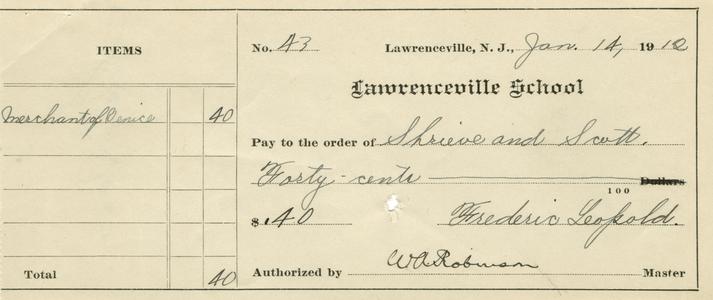 ITEMS
No. 43 Lawrenceville, N. J., Jan. 14, 1912
Lawrenceville School
Merchant of Venice 40
Pay to the order of Shrieve and Scott.
Forty cents Dollars
100
$ .40 Frederic Leopold.
Total 40
Authorized by WA Robinson Master